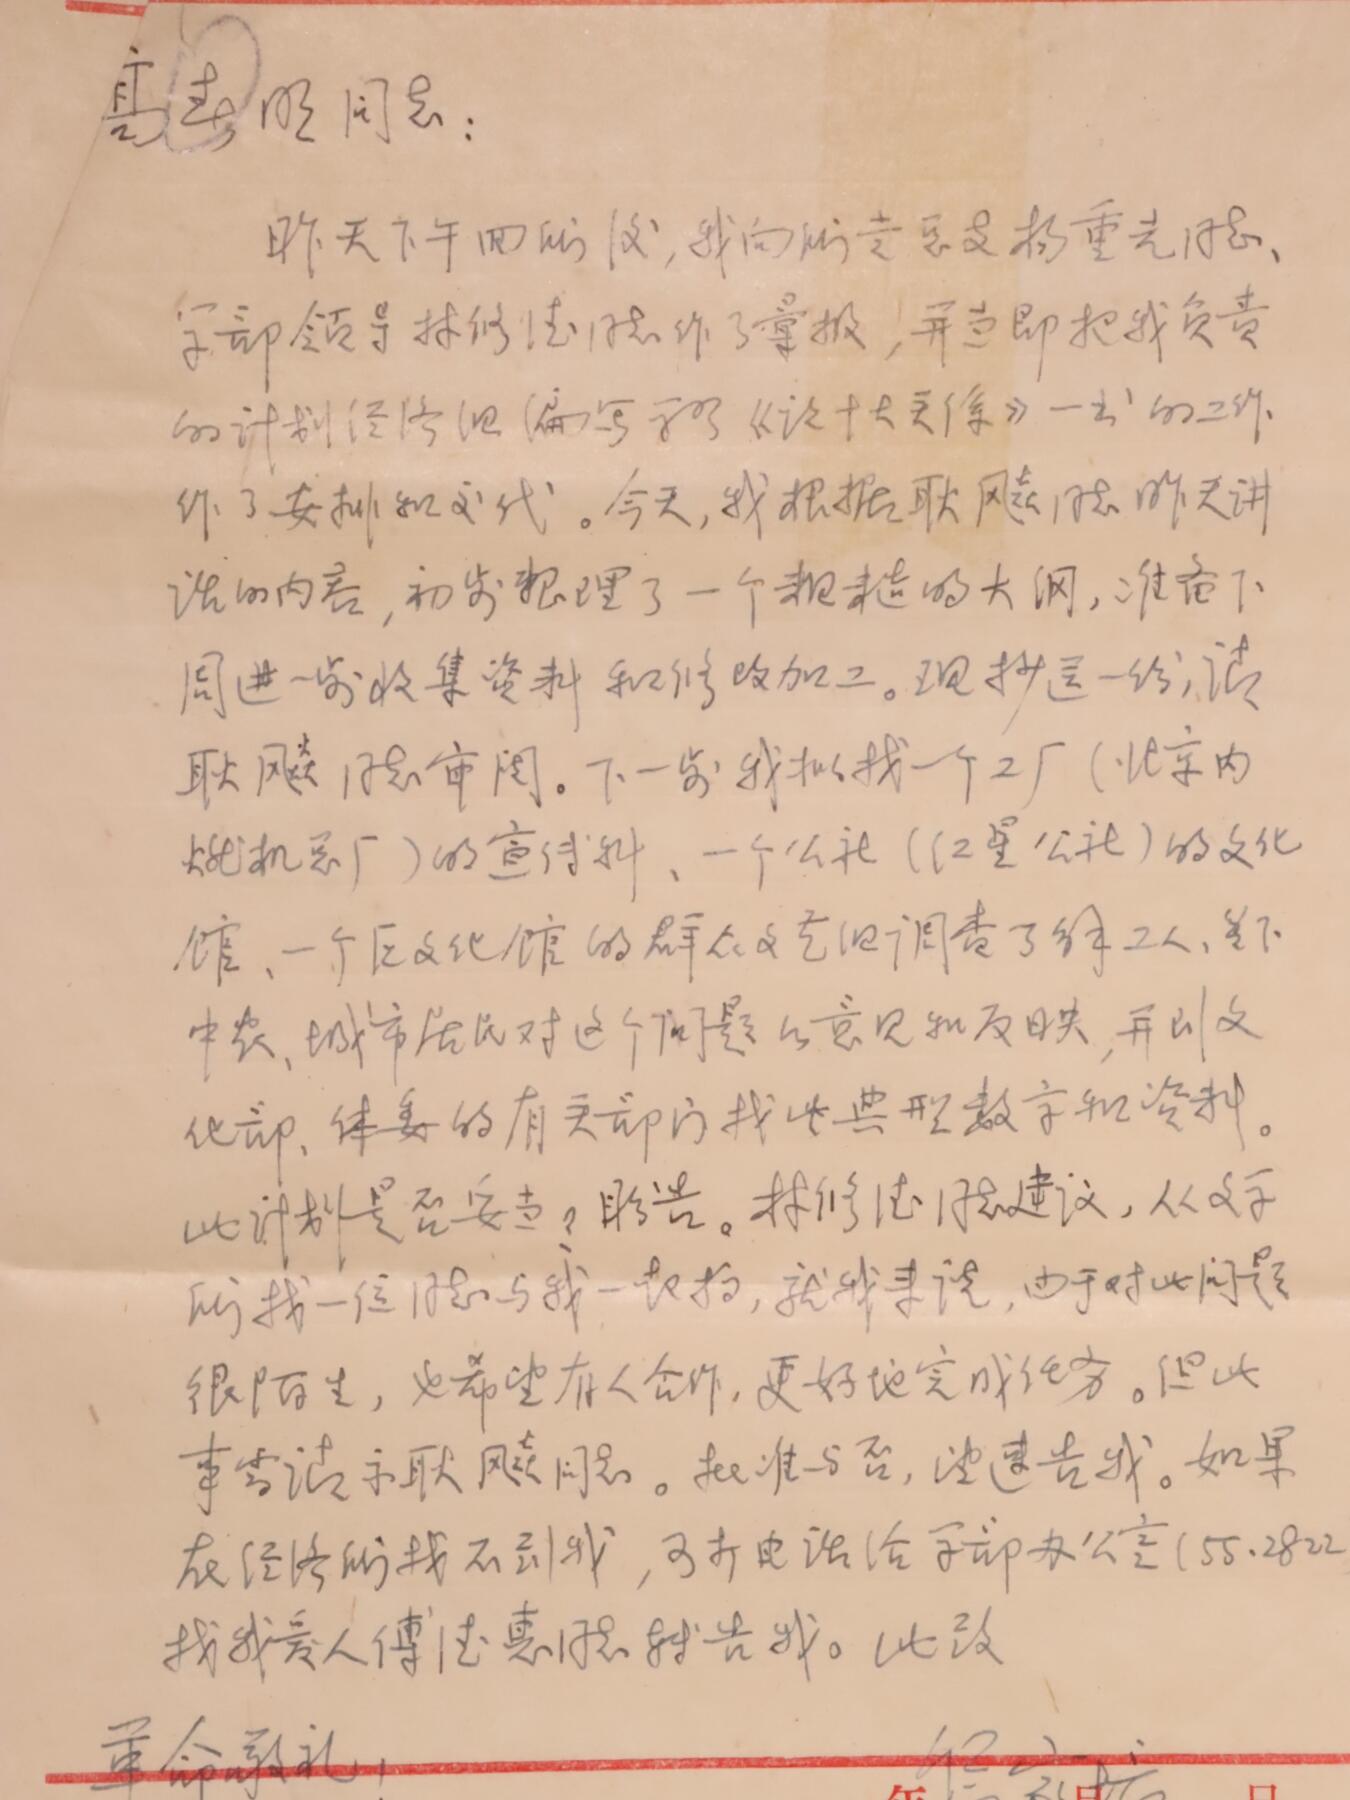 高春明同志：
昨天下午回所后，我向所党总支杨重光同志、
学部领导林修德同志作了汇报，并立即把我负责
的计划经济组编写学习《论十大关系》一书的工作
作了安排和交代。今天，我根据耿飚同志昨天讲
话的内容，初步整理了一个粗糙的大纲，准备下
周进一步收集资料和修改加工。现抄送一份，请
耿飚同志审阅。下一步我拟找一个工厂（北京内
燃机总厂）的宣传科、一个公社（红星公社）的文化
馆、一个区文化馆的群众文艺组调查了解工人、贫下
中农、城市居民对这个问题的意见和反映，并到文
化部、体委的有关部门找些典型数字和资料。
此计划是否妥当？盼告。林修德同志建议，从文学
所找一位同志与我一起搞，就我来说，由于对此问题
很陌生，也希望有人合作，更好地完成任务。但此
事需请示耿飚同志。批准与否，望速告我。如果
在经济所找不到我，可打电话给学部办公室（55.2822
找我爱人傅德惠同志转告我。此致
革命敬礼！
年 月 日